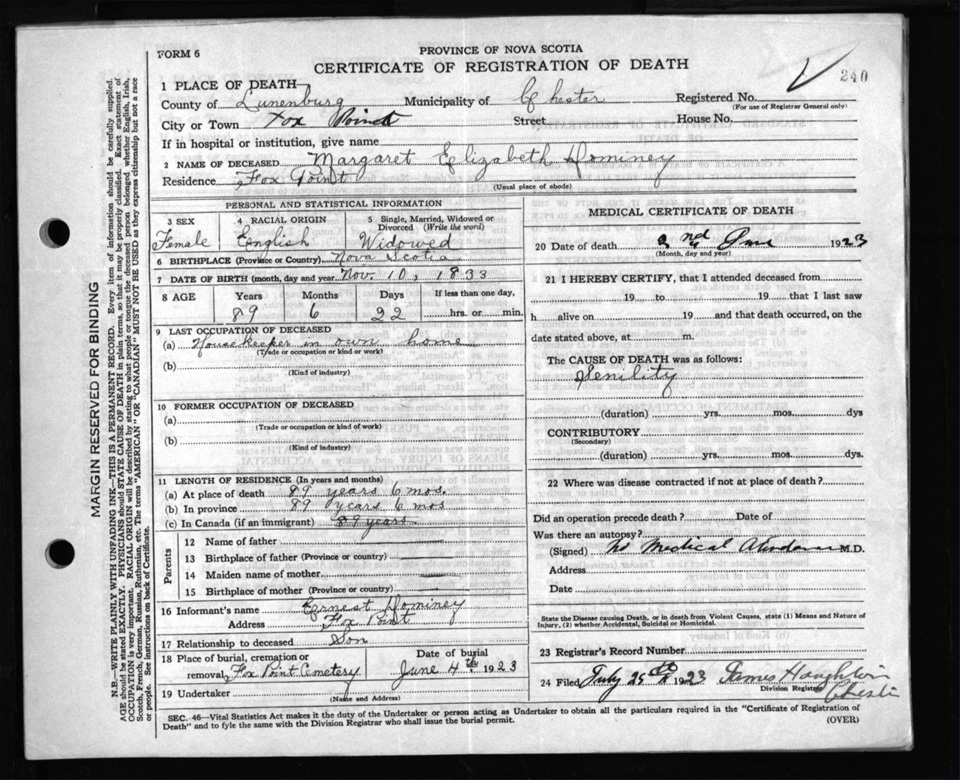 FORM 6
PROVINCE OF NOVA SCOTIA
CERTIFICATE OF REGISTRATION OF DEATH
240
1 PLACE OF DEATH
County of Lunenburg Municipality of Chester Registered No.
(For use of Registrar General only)
City or Town Fox Point Street House No.
If in hospital or institution, give name
2 NAME OF DECEASED Margaret Elizabeth Dominey
Residence Fox Point
(Usual place of abode)
PERSONAL AND STATISTICAL INFORMATION
3 SEX 4 RACIAL ORIGIN 5 Single, Married, Widowed or
Divorced (Write the word)
Female English Widowed
6 BIRTHPLACE (Province or Country) Nova Scotia
7 DATE OF BIRTH (month, day and year) Nov. 10, 1833
8 AGE Years Months Days If less than one day,
89 6 22 hrs. or min.
9 LAST OCCUPATION OF DECEASED
(a) Housekeeper in own home
(Trade or occupation or kind of work)
(b)
(Kind of industry)
10 FORMER OCCUPATION OF DECEASED
(a)
(Trade or occupation or kind of work)
(b)
(Kind of industry)
11 LENGTH OF RESIDENCE (In years and months)
(a) At place of death 89 years 6 mos.
(b) In province 89 years 6 mos
(c) In Canada (if an immigrant) 89 years
Parents
12 Name of father
13 Birthplace of father (Province or country)
14 Maiden name of mother
15 Birthplace of mother (Province or country)
16 Informant's name Ernest Dominey
Address Fox Point
17 Relationship to deceased Son
18 Place of burial, cremation or Date of burial
removal Fox Point Cemetery June 4th 1923
19 Undertaker
(Name and Address)
MEDICAL CERTIFICATE OF DEATH
20 Date of death 2nd June 1923
(Month, day and year)
21 I HEREBY CERTIFY, that I attended deceased from
19 to 19 that I last saw
h alive on 19 and that death occurred, on the
date stated above, at m.
The CAUSE OF DEATH was as follows:
Senility
(duration) yrs. mos. dys
CONTRIBUTORY
(Secondary)
(duration) yrs. mos. dys
22 Where was disease contracted if not at place of death?
Did an operation precede death? Date of
Was there an autopsy?
(Signed) No Medical Attendance M.D.
Address
Date
State the Disease causing Death, or in death from Violent Causes, state (1) Means and Nature of
Injury, (2) whether Accidental, Suicidal or Homicidal.
23 Registrar's Record Number
24 Filed July 25th 1923 James
Division Registrar
Chester
SEC. 46—Vital Statistics Act makes it the duty of the Undertaker or person acting as Undertaker to obtain all the particulars required in the "Certificate of Registration of
Death" and to fyle the same with the Division Registrar who shall issue the burial permit.
(OVER)
MARGIN RESERVED FOR BINDING
N.B.—WRITE PLAINLY WITH UNFADING INK—THIS IS A PERMANENT RECORD. Every item of information should be carefully supplied.
AGE should be stated EXACTLY. PHYSICIANS should STATE CAUSE OF DEATH in plain terms, so that it may be properly classified. Exact statement of
OCCUPATION is very important. RACIAL ORIGIN will be described by stating to what people or tongue the deceased person belonged, whether English, Irish,
Scotch, French, German, Russian, Ruthenian, etc. The terms "AMERICAN" OR "CANADIAN" MUST NOT BE USED as they express citizenship but not a race
or people. See instructions on back of Certificate.